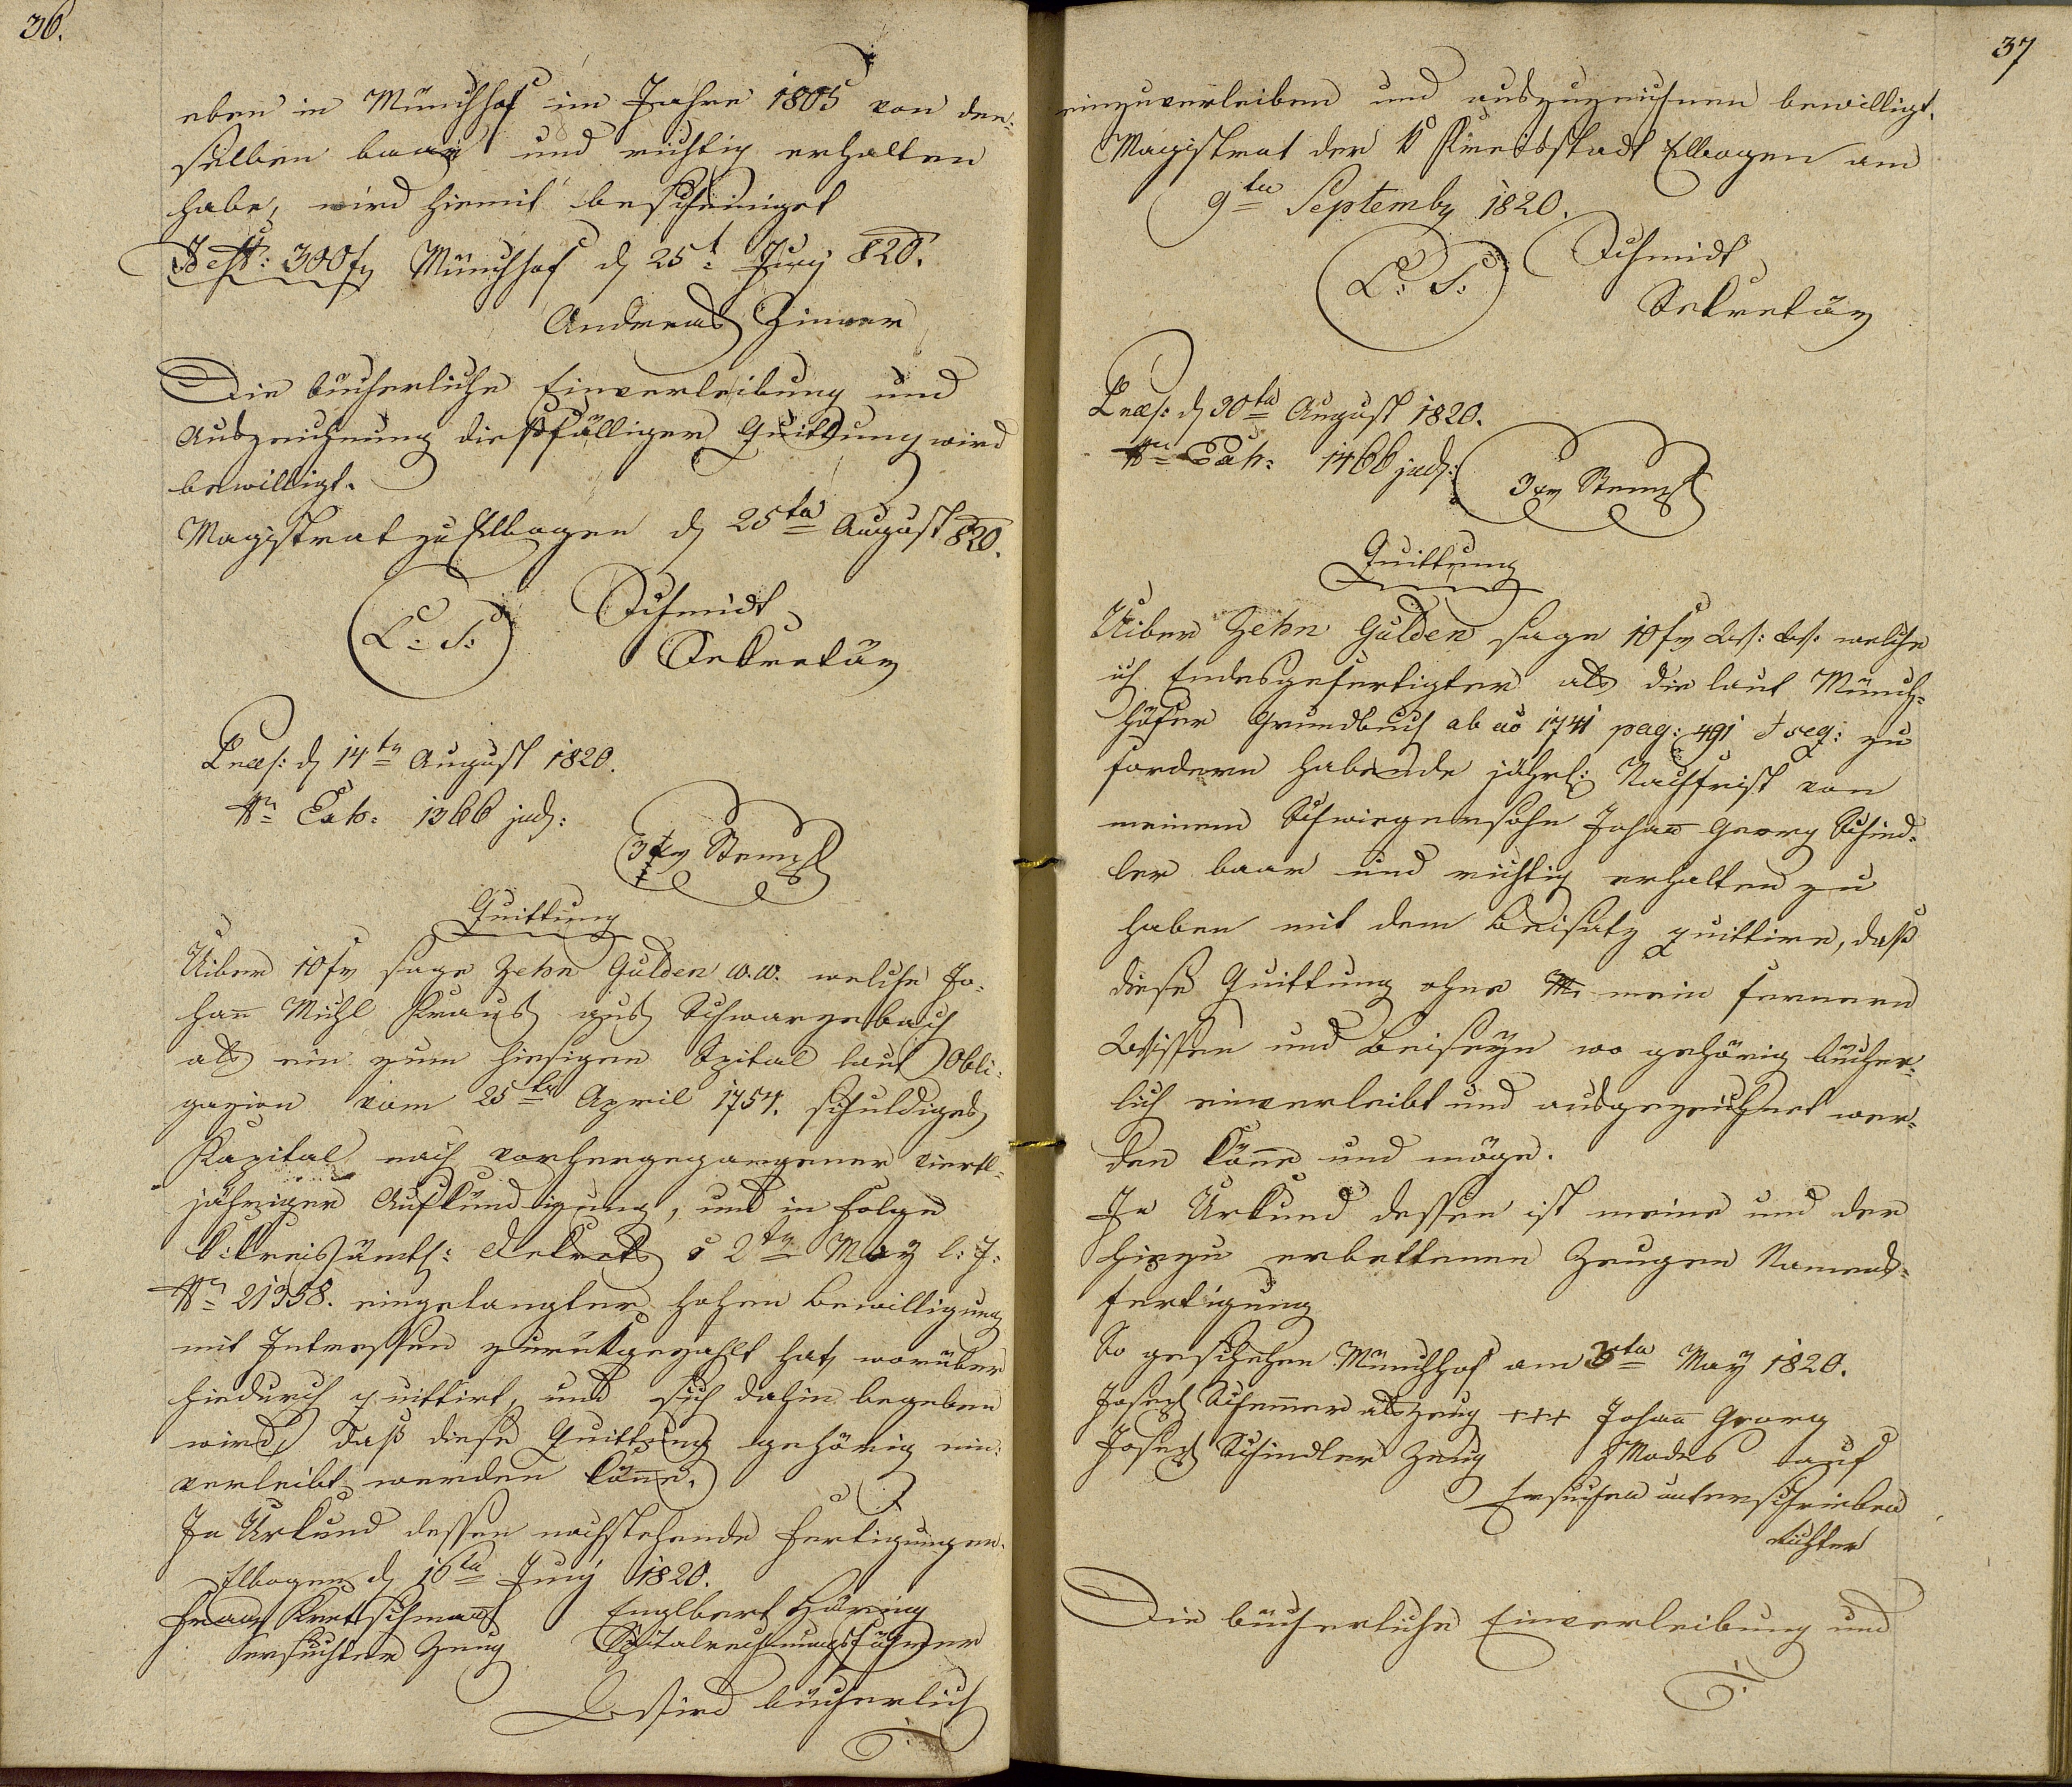 36.
eben in Münchhof im Jahre 1805 von den-
selben baar und richtig erhalten
habe, wird hiemit bescheiniget
300 fr Münchhof d 25t Juny 820.
Andreas Zinner
Die bücherliche Einverleibung und
Auszeichnung dießfälliger Quittung wird
bewilligt.
Magistrat zu Elbogen d 25ten August 820.
L: S: Schmidt
Sekretär
Praes: d 14ten August 1820.
Nr Exh: 1366 jud:
3 xr Stempl
Quittung
Uiber 10 fr sage Zehn Gulden W.W. welche Jo-
hann Michl Kraus aus Schwarzenbach
als ein zum hiesigen Spital laut Obli-
gazion vom 25ten April 1754. schuldiges
Kapital nach vorhergegangener viertl-
jähriger Aufkündigung, und in Folge
k: kreisämtl: Dekrets v 2ten May l: J:
Nr 21358. eingelangter hohen Bewilligung
mit Interessen zurükgezahlt hat, worüber
hiedurch quittirt, und sich dahin begeben
wird, daß diese Quittung gehörig ein-
verleibt werden könne.
In Urkund dessen nachstehende Fertigungen.
Elbogen d 16ten Juny 1820.
Franz Kretschmann Englbert Häring
ersuchter Zeug Spitalrechnungsführer
Wird bücherlich
37
einzuverleiben und auszuzeichnen bewilligt.
Magistrat der K Kreisstadt Elbogen am
9ten September 1820.
L: S: Schmidt
Sekretär
Praes: d 30ten August 1820.
Nr Exh: 1466 jud:
3 xr Stempl
Quittung
Uiber Zehn Gulden sage 10 fr W: W: welche
ich Endesgefertigter als die laut Münch-
höfer Grundbuch ab ao 1741 pag: 491 et seq: zu
fordern habende jährl: Nachfrist von
meinem Schwiegersohn Johan Georg Schind-
ler baar und richtig erhalten zu
haben mit dem Beisatz quittire, daß
diese Quittung ohne mein fernern
Wissen und Beiseyn wo gehörig bücher-
lich einverleibt und ausgezeichnet wer-
den könne und möge.
In Urkund dessen ist meine und der
hiezu erbettenen Zeugen Namens-
fertigung
So geschehen Münchhof am 3ten May 1820.
Joseph als Zeug +++ Johann Georg
Joseph Schindler Zeug Modes auf
Ersuchen unterschrieben
Richter
Die bücherliche Einverleibung und